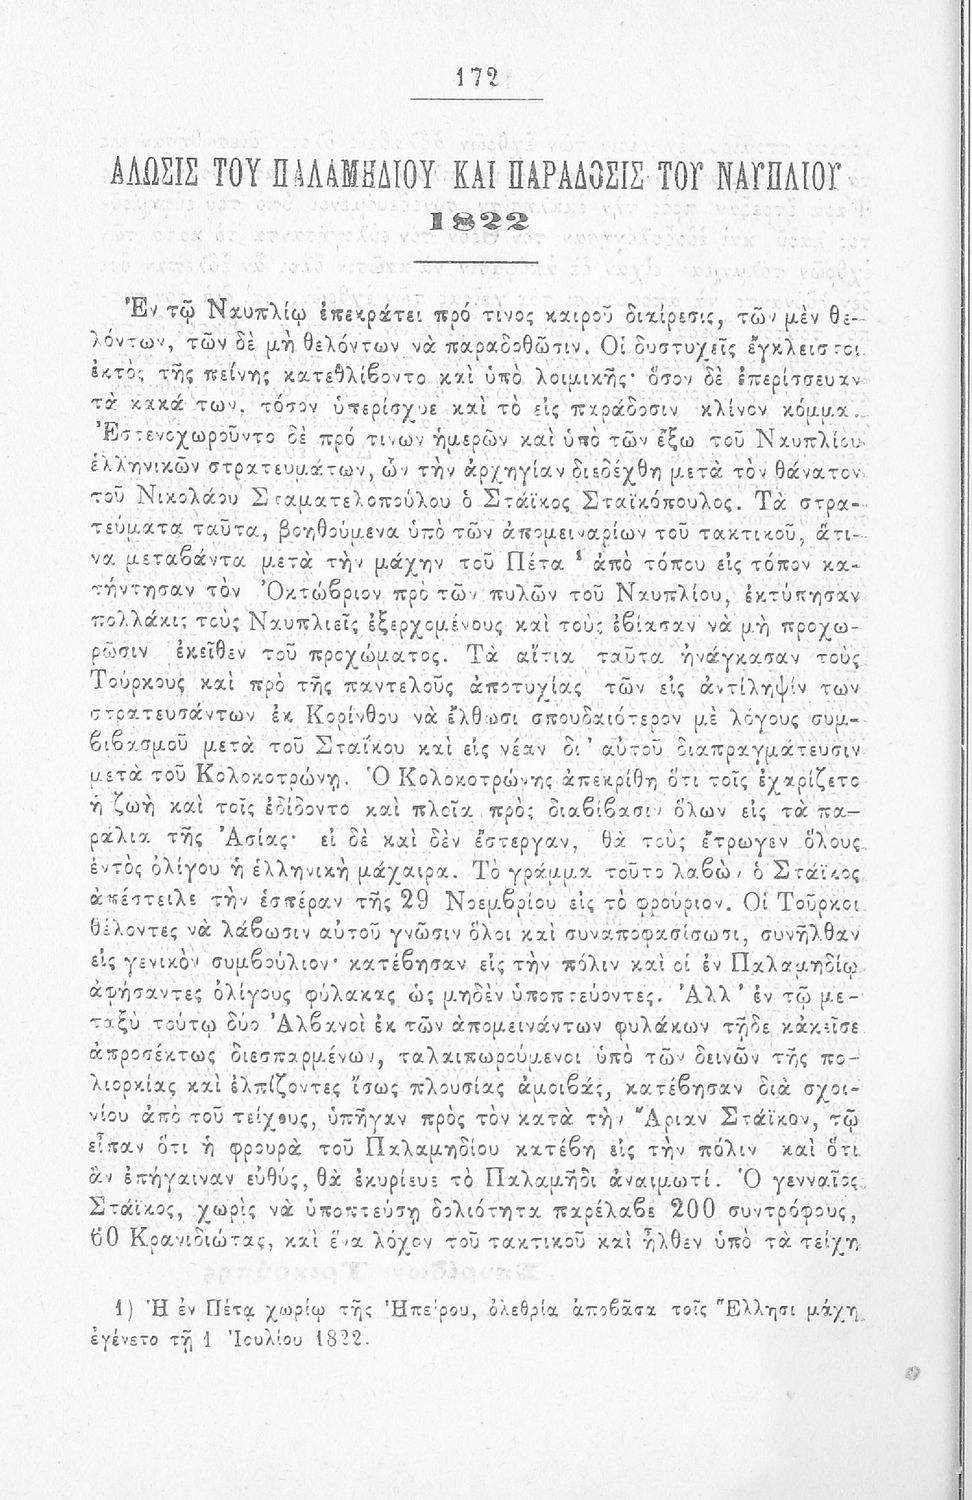 172
ΑΛΩΣΙΣ ΤΟΥ ΠΑΛΑΜΗΔΙΟΥ ΚΑΙ ΠΑΡΑΔΟΣΙΣ ΤΟΥ ΝΑΥΠΛΙΟΥ
1822
Ἐν τῷ Ναυπλίῳ ἐπεκράτει πρό τινος καιροῦ διαίρεσις, τῶν μὲν θε-
λόντων, τῶν δὲ μὴ θελόντων νὰ παραδοθῶσιν. Οἱ δυστυχεῖς ἔγκλειστοι
ἐκτὸς τῆς πείνης κατεθλίβοντο καὶ ὑπὸ λοιμικῆς· ὅσον δὲ ἐπερίσσευαν
τὰ κακά των, τόσον ὑπερίσχυε καὶ τὸ εἰς παράδοσιν κλίνον κόμμα.
Ἐστενοχωροῦντο δὲ πρό τινων ἡμερῶν καὶ ὑπὸ τῶν ἔξω τοῦ Ναυπλίου
ἑλληνικῶν στρατευμάτων, ὧν τὴν ἀρχηγίαν διεδέχθη μετὰ τὸν θάνατον
τοῦ Νικολάου Σταματελοπούλου ὁ Στάϊκος Σταϊκόπουλος. Τὰ στρα-
τεύματα ταῦτα, βοηθούμενα ὑπὸ τῶν ἀπομειναρίων τοῦ τακτικοῦ, ἅτι-
να μεταβάντα μετὰ τὴν μάχην τοῦ Πέτα ¹ ἀπὸ τόπου εἰς τόπον κα-
τήντησαν τὸν Ὀκτώβριον πρὸ τῶν πυλῶν τοῦ Ναυπλίου, ἐκτύπησαν
πολλάκις τοὺς Ναυπλιεῖς ἐξερχομένους καὶ τοὺς ἐβίασαν νὰ μὴ προχω-
ρῶσιν ἐκεῖθεν τοῦ προχώματος. Τὰ αἴτια ταῦτα ἠνάγκασαν τοὺς
Τούρκους καὶ πρὸ τῆς παντελοῦς ἀποτυχίας τῶν εἰς ἀντίληψίν των
στρατευσάντων ἐκ Κορίνθου νὰ ἔλθωσι σπουδαιότερον μὲ λόγους συμ-
βιβασμοῦ μετὰ τοῦ Σταΐκου καὶ εἰς νέαν δι' αὐτοῦ διαπραγμάτευσιν
μετὰ τοῦ Κολοκοτρώνη. Ὁ Κολοκοτρώνης ἀπεκρίθη ὅτι τοῖς ἐχαρίζετο
ἡ ζωὴ καὶ τοῖς ἐδίδοντο καὶ πλοῖα πρὸς διαβίβασιν ὅλων εἰς τὰ πα-
ράλια τῆς Ἀσίας· εἰ δὲ καὶ δὲν ἔστεργαν, θὰ τοὺς ἔτρωγεν ὅλους
ἐντὸς ὀλίγου ἡ ἑλληνικὴ μάχαιρα. Τὸ γράμμα τοῦτο λαβὼν ὁ Στάϊκος
ἀπέστειλε τὴν ἑσπέραν τῆς 29 Νοεμβρίου εἰς τὸ φρούριον. Οἱ Τοῦρκοι
θέλοντες νὰ λάβωσιν αὐτοῦ γνῶσιν ὅλοι καὶ συναποφασίσωσι, συνῆλθαν
εἰς γενικὸν συμβούλιον· κατέβησαν εἰς τὴν πόλιν καὶ οἱ ἐν Παλαμηδίῳ
ἀφήσαντες ὀλίγους φύλακας ὡς μηδὲν ὑποπτεύοντες. Ἀλλ' ἐν τῷ με-
ταξὺ τούτῳ δύο Ἀλβανοὶ ἐκ τῶν ἀπομεινάντων φυλάκων τῇδε κἀκεῖσε
ἀπροσέκτως διεσπαρμένων, ταλαιπωρούμενοι ὑπὸ τῶν δεινῶν τῆς πο-
λιορκίας καὶ ἐλπίζοντες ἴσως πλουσίας ἀμοιβάς, κατέβησαν διὰ σχοι-
νίου ἀπὸ τοῦ τείχους, ὑπῆγαν πρὸς τὸν κατὰ τὴν Ἄριαν Στάϊκον, τῷ
εἶπαν ὅτι ἡ φρουρὰ τοῦ Παλαμηδίου κατέβη εἰς τὴν πόλιν καὶ ὅτι
ἂν ἐπήγαιναν εὐθύς, θὰ ἐκυρίευε τὸ Παλαμῆδι ἀναιμωτί. Ὁ γενναῖος
Στάϊκος, χωρὶς νὰ ὑποπτεύσῃ δολιότητα παρέλαβε 200 συντρόφους,
60 Κρανιδιώτας, καὶ ἕνα λόχον τοῦ τακτικοῦ καὶ ἦλθεν ὑπὸ τὰ τείχη
1) Ἡ ἐν Πέτᾳ χωρίῳ τῆς Ἠπείρου, ὀλεθρία ἀποβᾶσα τοῖς Ἕλλησι μάχη
ἐγένετο τῇ 1 Ἰουλίου 1822.